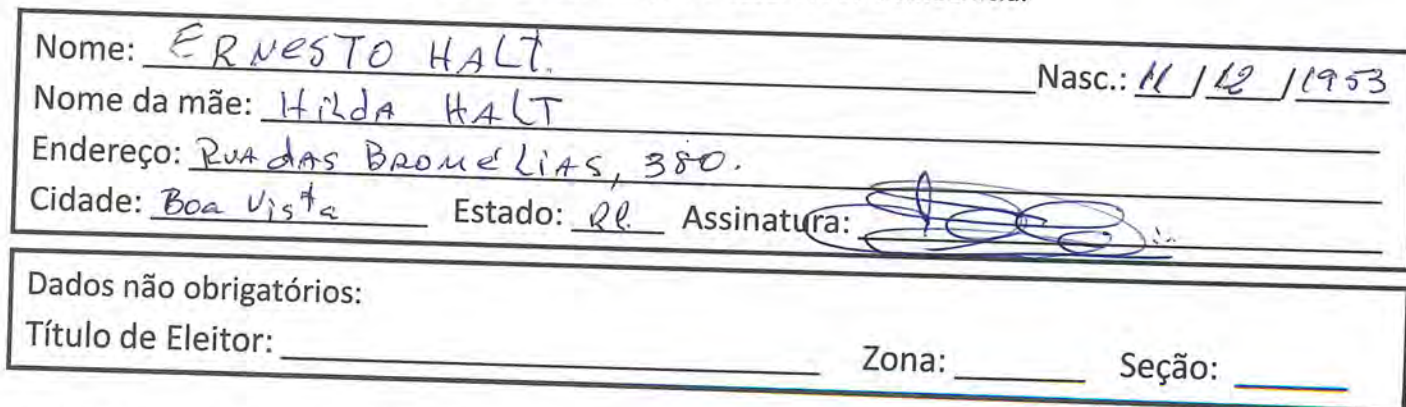 Nome: ERNESTO HALT. Nasc.: 11/12/1953
Nome da mãe: Hilda HALT
Endereço: RUA dAS BROMéLiAS, 380.
Cidade: Boa Vista Estado: RR. Assinatura:
Dados não obrigatórios:
Título de Eleitor: Zona: Seção: